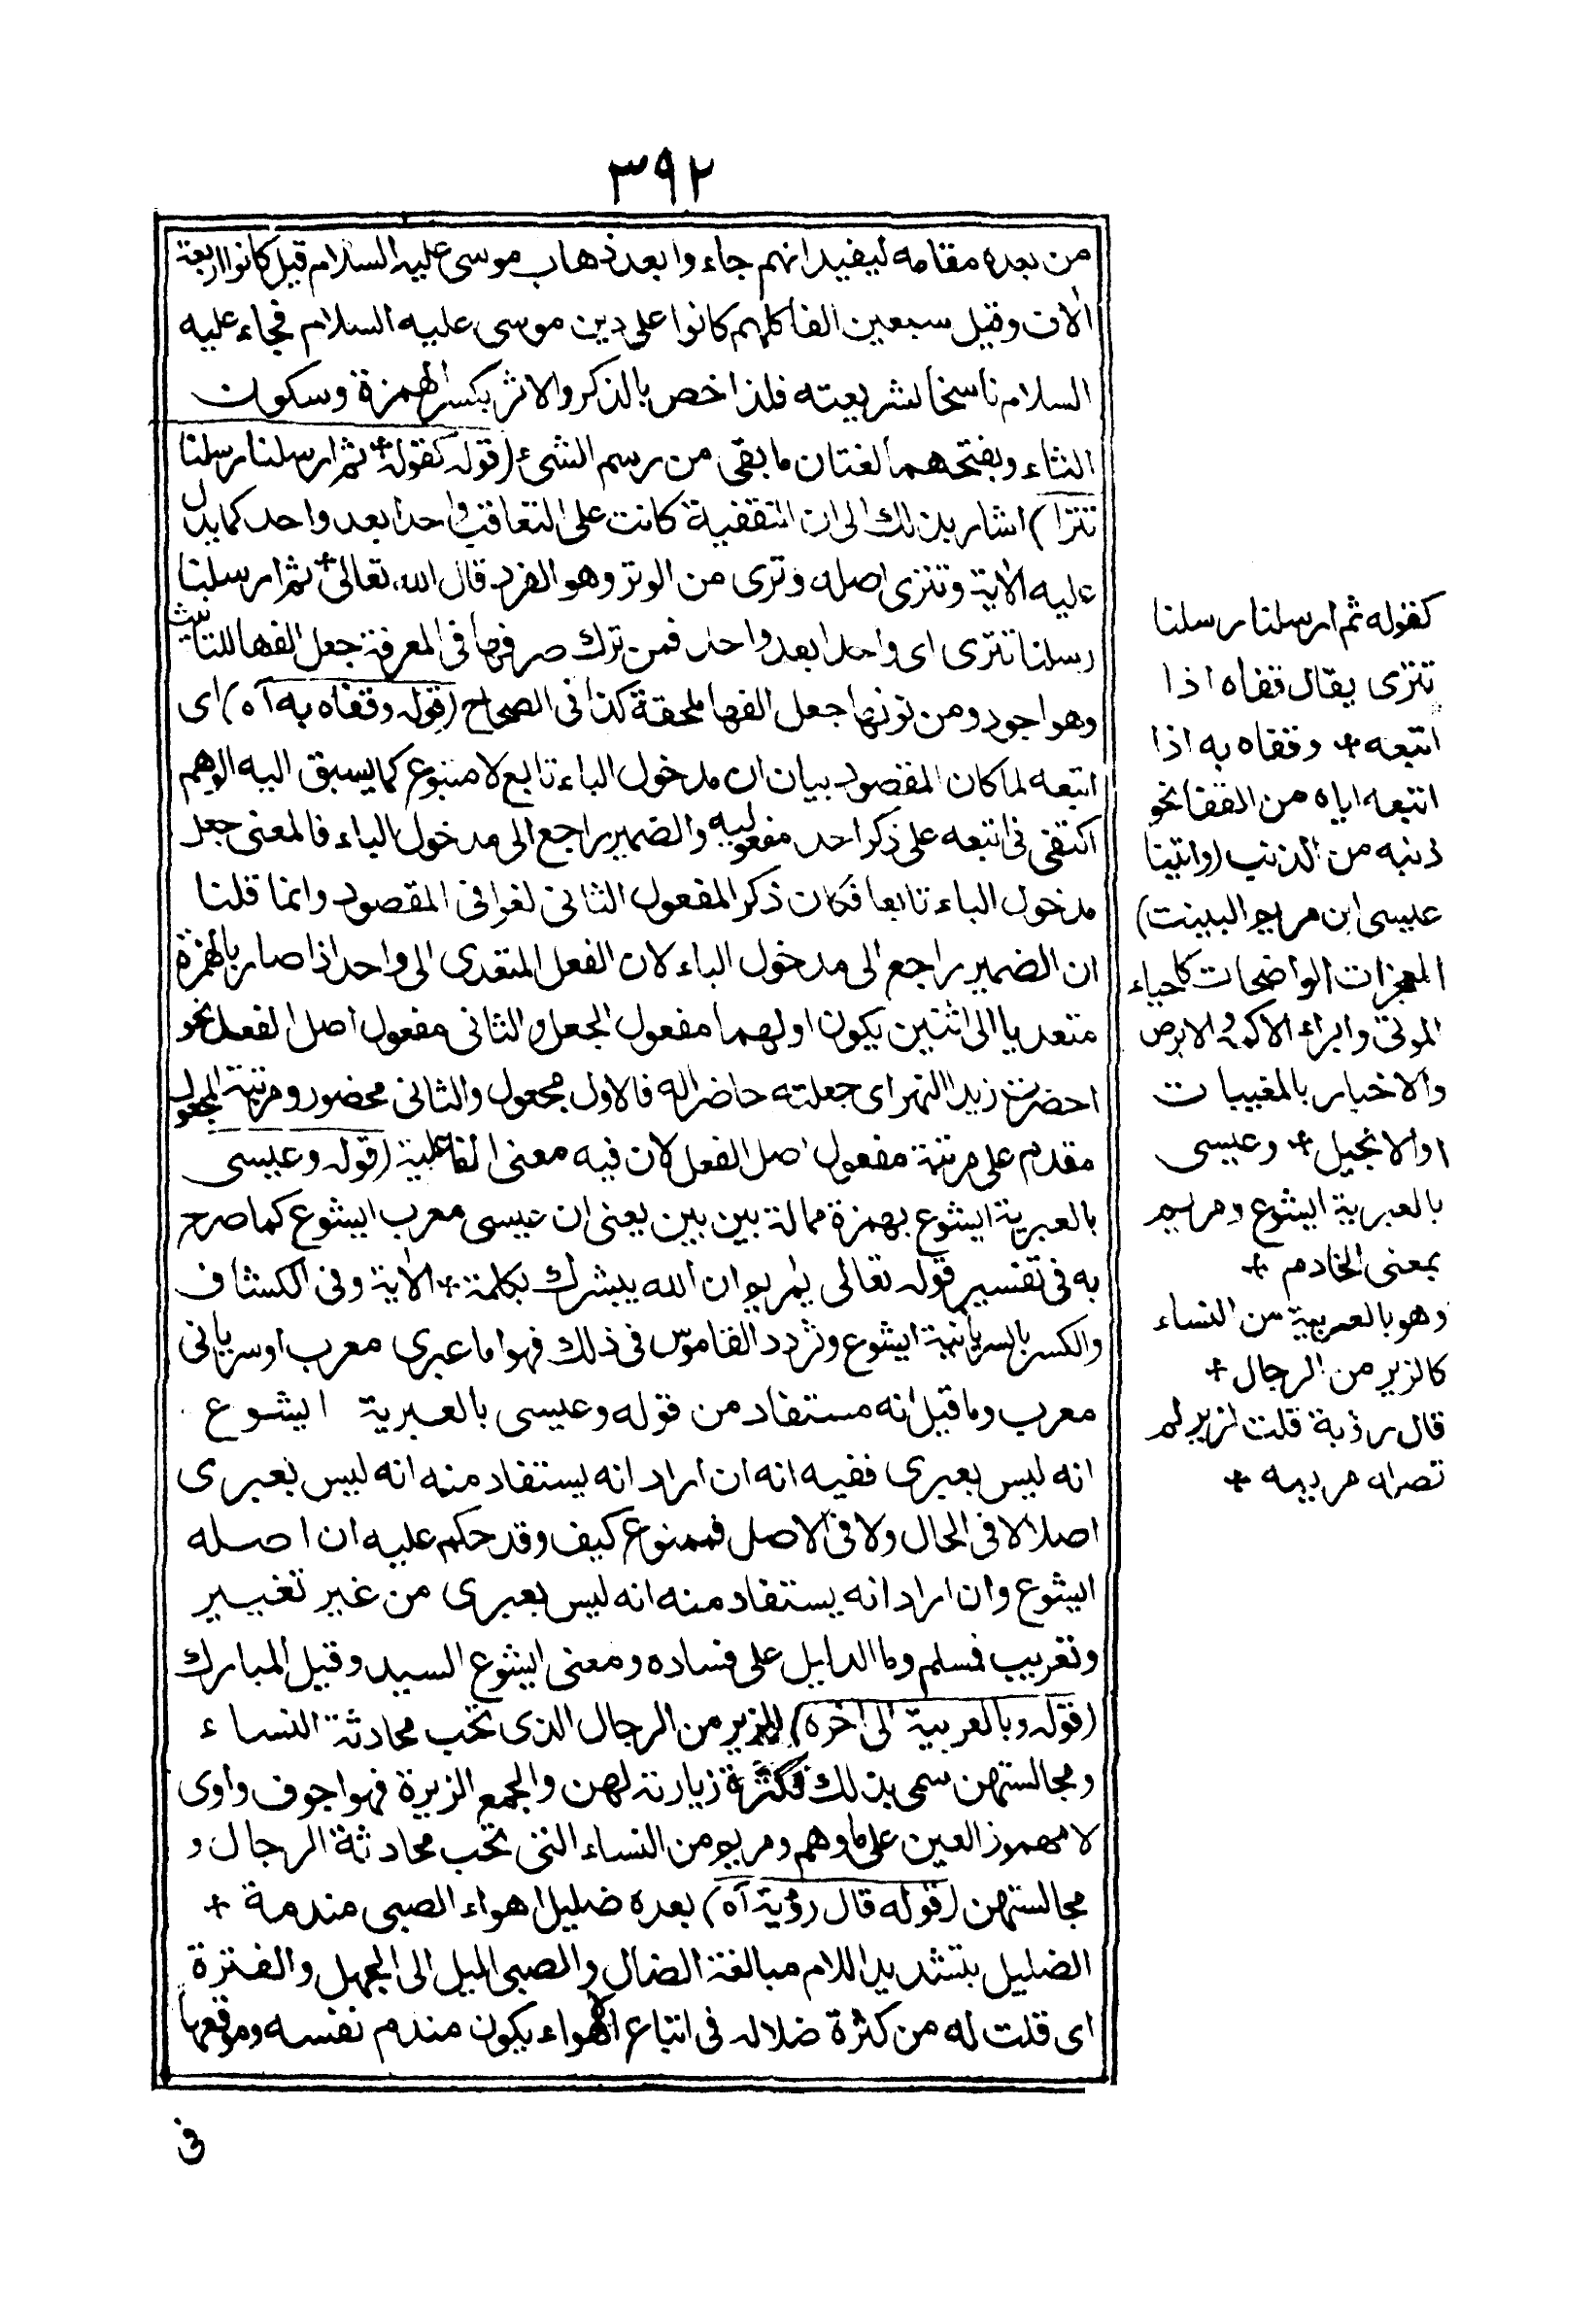 ٣٩٢
من بعده مقامه ليفيد انهم جاءوا بعد ذهاب موسى عليه السلام قيل كانوا اربعة
الاف وقيل سبعين الفا كلهم كانوا على دين موسى عليه السلام فجاء عليه
السلام ناسخا لشريعته فلذا خص بالذكر والاثر بكسر الهمزة وسكون
الثاء وبفتحهما لغتان ما بقى من رسم الشئ (قوله كقوله + ثم ارسلنا رسلنا
تترا) اشار بذلك الى ان التقفية كانت على التعاقب واحدا بعد واحد كما يدل
عليه الآية وتترى اصله وترى من الوتر وهو الفرد قال الله تعالى + ثم ارسلنا
رسلنا تترى اى واحدا بعد واحد فمن ترك صرفها فى المعرفة جعل الفها للتانيث
وهو اجود ومن نونها جعل الفها ملحقة كذا فى الصحاح (قوله وقفاه به آه) اى
اتبعه لما كان المقصود بيان ان مدخول الباء تابع لا متبوع كما يسبق اليه الوهم
اكتفى فى اتبعه على ذكر احد مفعوليه والضمير راجع الى مدخول الباء فالمعنى جعل
مدخول الباء تابعا فكان ذكر المفعول الثانى لغوا فى المقصود وانما قلنا
ان الضمير راجع الى مدخول الباء لان الفعل المتعدى الى واحد اذا صار بالهمزة
متعديا الى اثنين يكون اولهما مفعول الجعل والثانى مفعول اصل الفعل نحو
احضرت زيدا النهر اى جعلته حاضرا له فالاول مجعول والثانى محضور ومرتبة المجعول
مقدم على مرتبة مفعول اصل الفعل لان فيه معنى الفاعلية (قوله وعيسى
بالعبرية ايشوع بهمزة ممالة بين بين يعنى ان عيسى معرب ايشوع كما صرح
به فى تفسير قوله تعالى يمريم ان الله يبشرك بكلمة + الآية وفى الكشاف
والكسر بالسريانية ايشوع وتردد القاموس فى ذلك فهو اما عبرى معرب او سريانى
معرب وما قيل انه مستفاد من قوله وعيسى بالعبرية ايشوع
انه ليس بعبرى ففيه انه ان اراد انه يستفاد منه انه ليس بعبرى
اصلا لا فى الحال ولا فى الاصل فممنوع كيف وقد حكم عليه ان اصله
ايشوع وان اراد انه يستفاد منه انه ليس بعبرى من غير تغيير
وتعريب فمسلم وما الدليل على فساده ومعنى ايشوع السيد وقيل المبارك
(قوله وبالعربية الى آخره) الزير من الرجال الذى تحب محادثة النساء
ومجالستهن سمى بذلك لكثرة زيارته لهن والجمع الزيرة فهو اجوف واوى
لا مهموز العين على ما وهم ومريم من النساء التى تحب محادثة الرجال و
مجالستهن (قوله قال رؤبة آه) بعده ضليل اهواء الصبى مندمة +
الضليل بتشديد اللام مبالغة الضال والصبى الميل الى الجهل والفترة
اى قلت له من كثرة ضلاله فى اتباع الاهواء يكون مندم نفسه وموقعها
فى
كقوله ثم ارسلنا رسلنا
تترى يقال قفاه اذا
اتبعه + وقفاه به اذا
اتبعه اياه من القفا نحو
ذنبه من الذنب (واتينا
عيسى ابن مريم البينت)
المعجزات الواضحات كاحياء
الموتى وابراء الاكمه والابرص
والاخبار بالمغيبات
او الانجيل + وعيسى
بالعبرية ايشوع ومريم
بمعنى الخادم +
وهو بالعربية من النساء
كالزير من الرجال +
قال رؤبة قلت لزير لم
تصله مريمه +